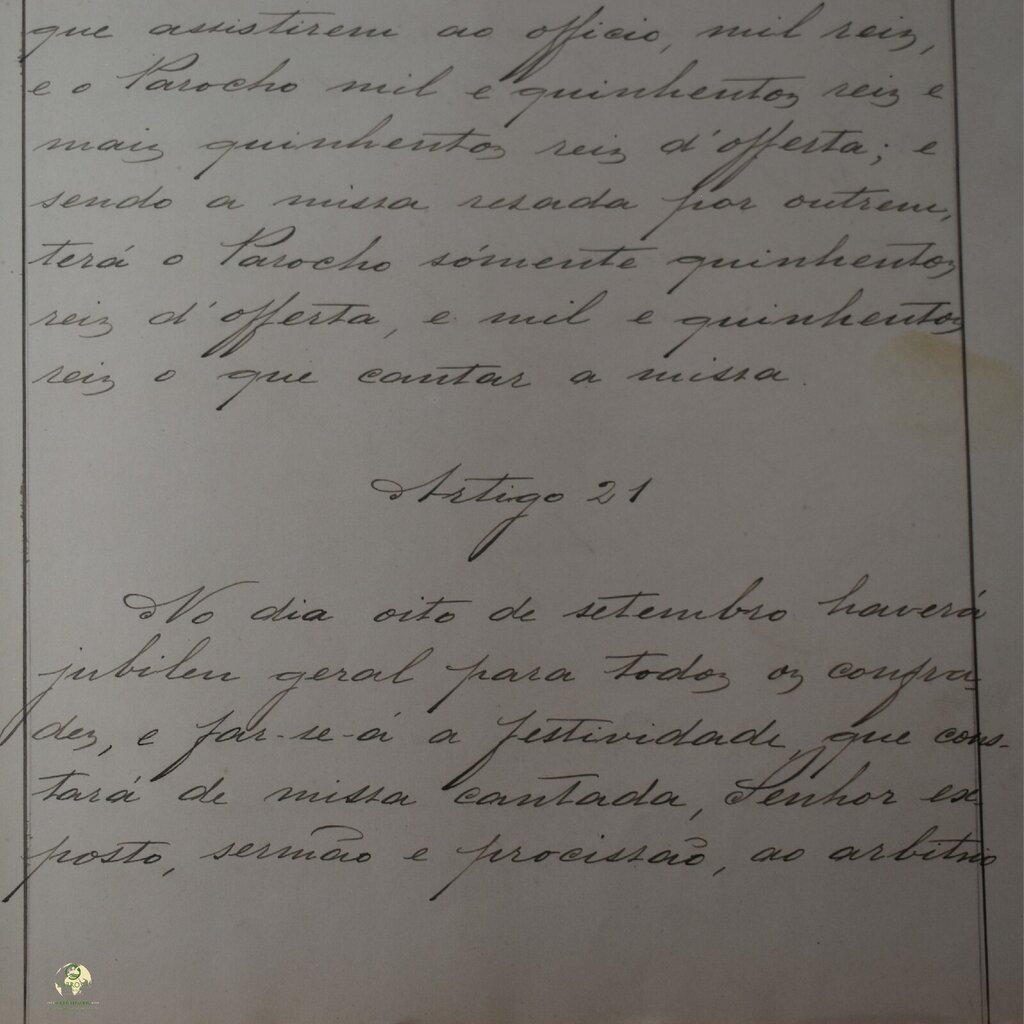 que assistirem ao officio, mil reis,
e o Parocho mil e quinhentos reis e
mais quinhentos reis d'offerta; e
sendo a missa resada por outrem,
terá o Parocho sómente quinhentos
reis d'offerta, e mil e quinhentos
reis o que cantar a missa.
Artigo 21
No dia oito de setembro haverá
jubileu geral para todos os confra-
des, e far-se-á a festividade, que cons-
tará de missa cantada, Senhor ex-
posto, sermão e procissão, ao arbitrio